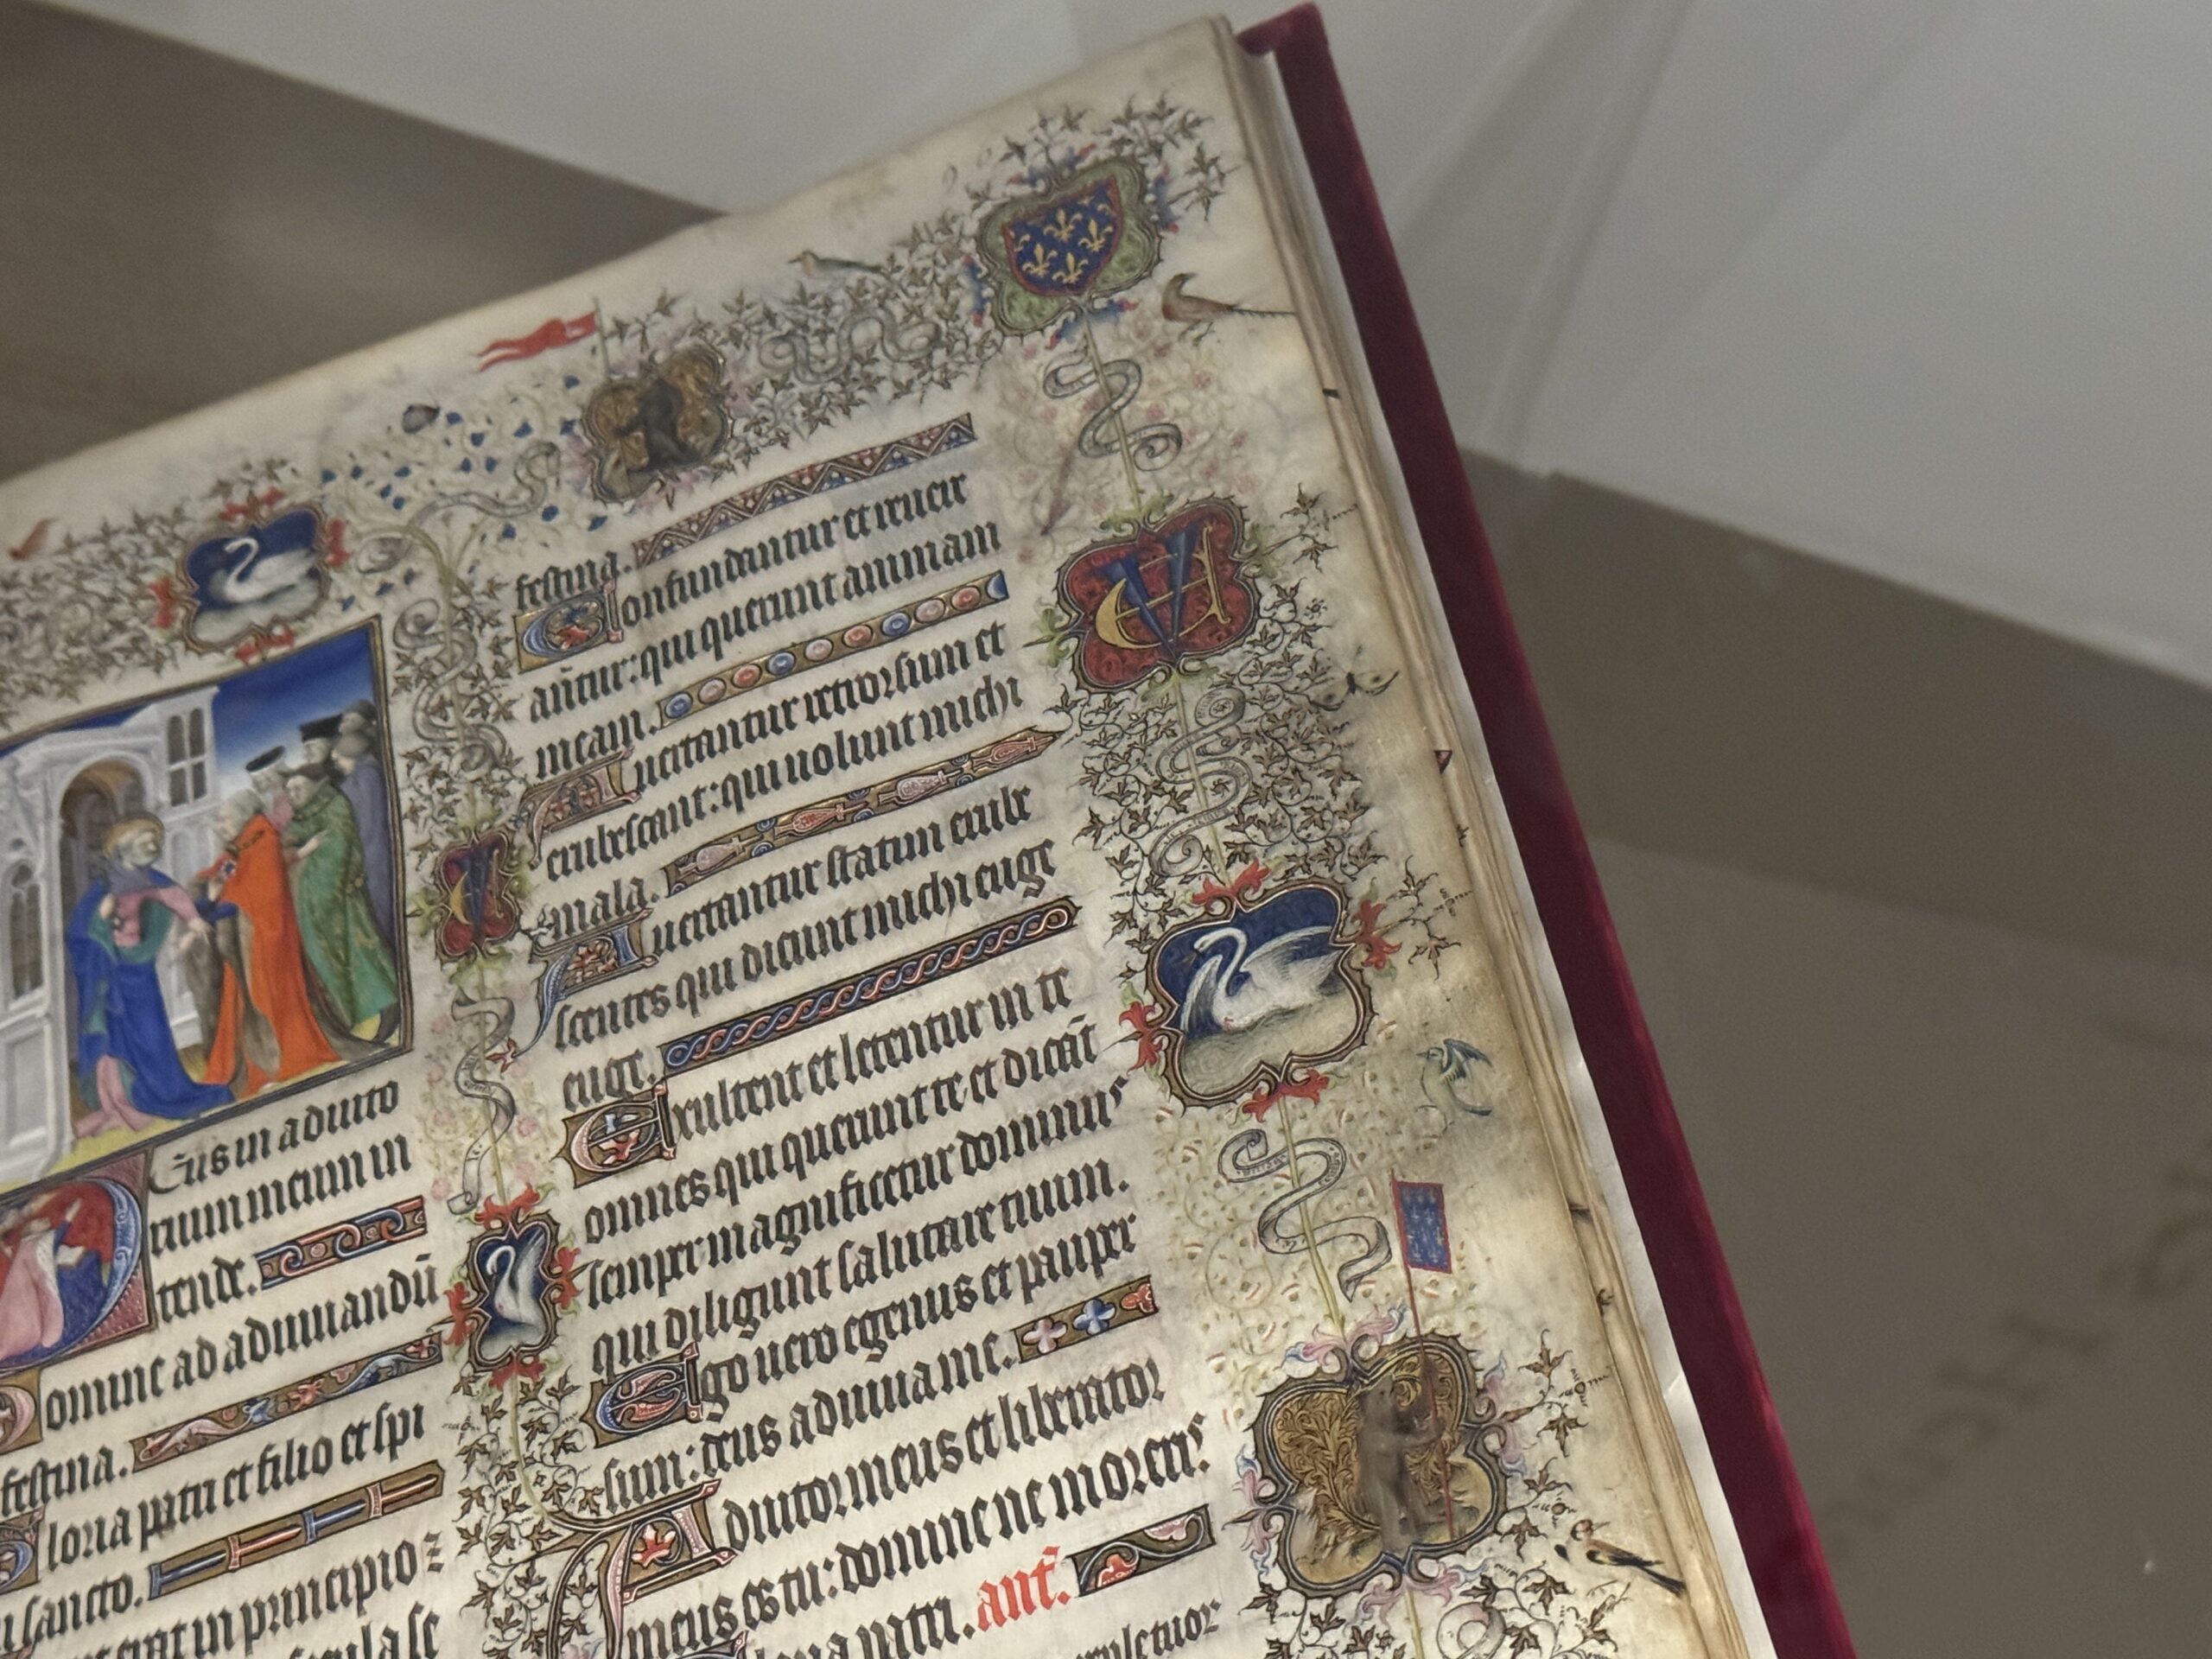 Eus in adiuto
rium meum in
tende.
Domine ad adiuuandū
festina.
Gloria patri et filio et spi
ui sancto.
erat in principio et
secula se
festina.
Confundantur et reuere
ātur: qui querunt animam
meam.
Auertantur retrorsum et
erubescant: qui uolunt michi
mala.
Auertantur statim erube
scentes qui dicunt michi euge
euge.
Exultent et letentur in te
omnes qui querunt te et dicāt
semper magnificetur dominus
qui diligunt salutare tuum.
Ego uero egenus et pauper
sum: deus adiuua me.
Adiutor meus et liberator
meus es tu: domine ne moreris.
Gloria patri. ant.